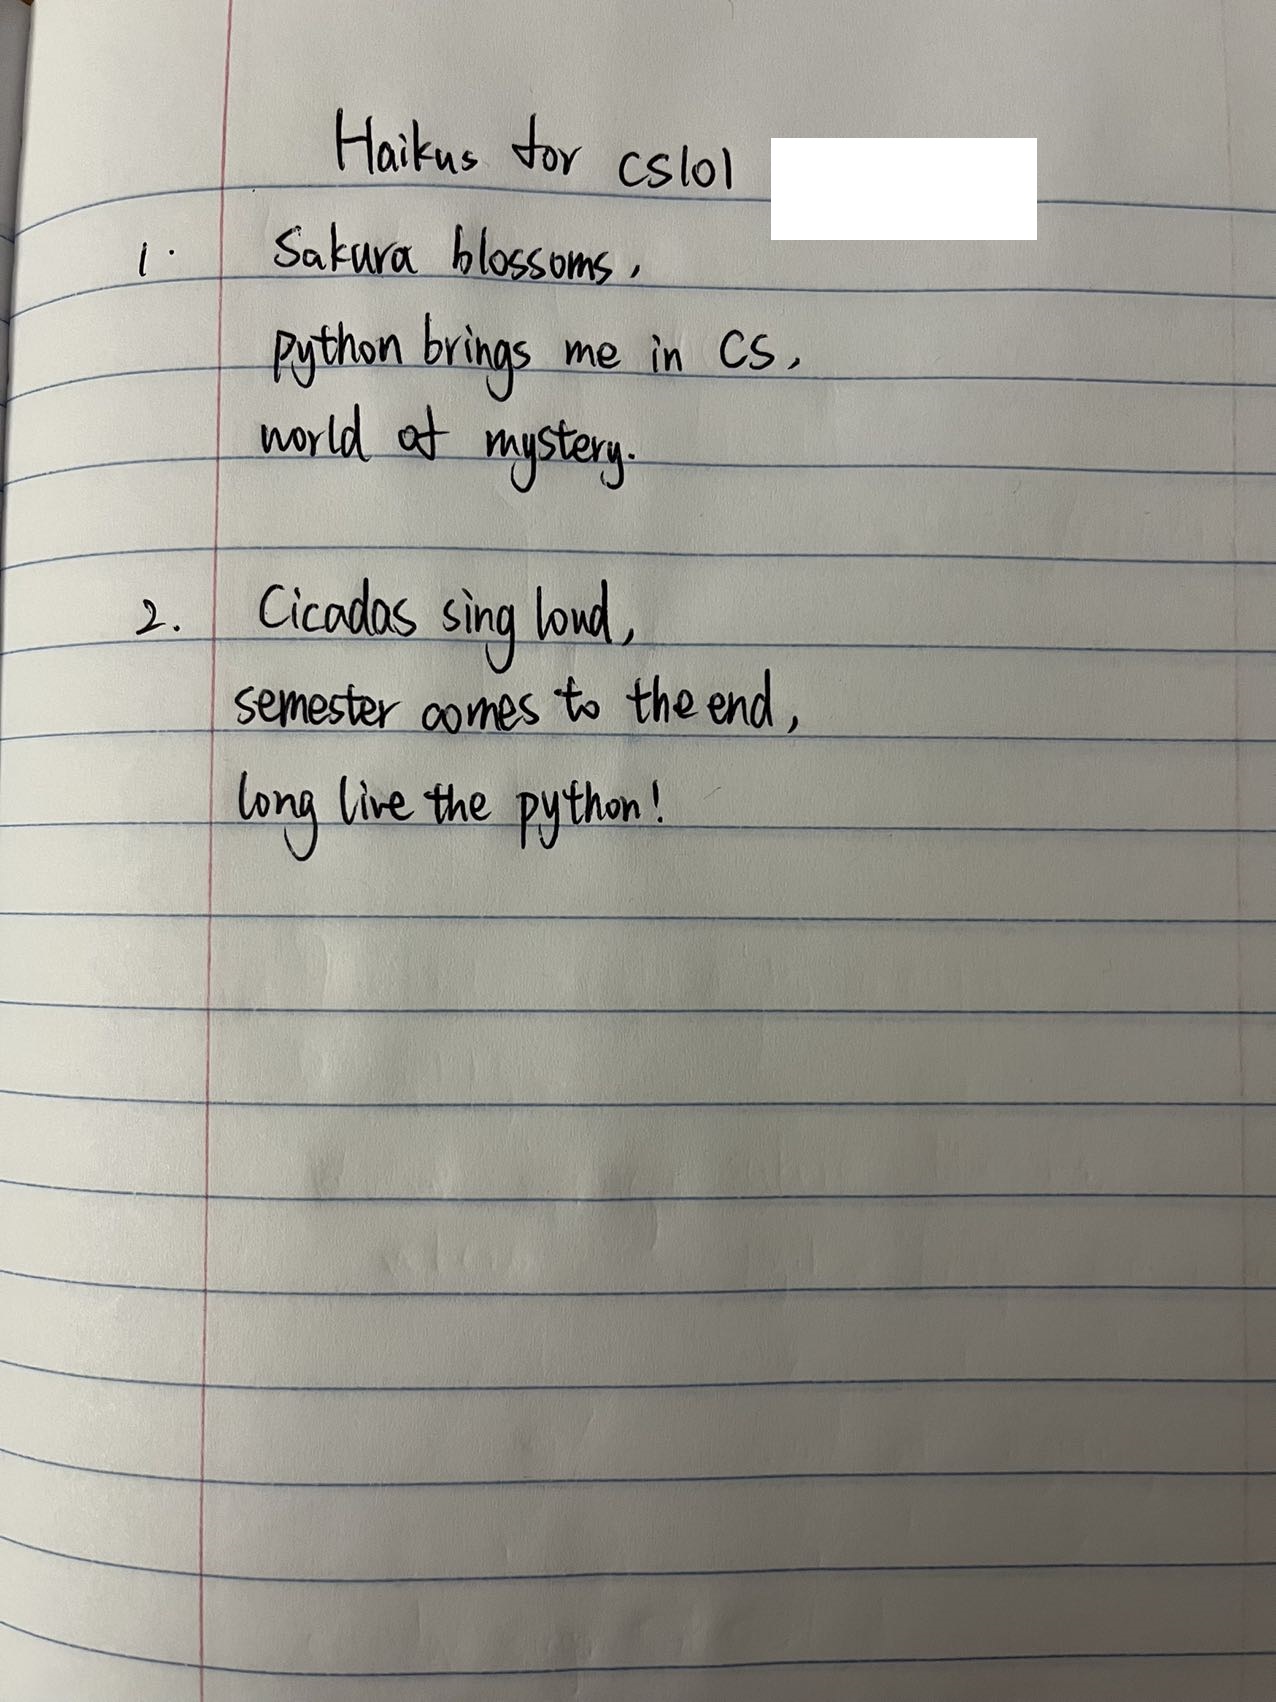 Haikus for CS101
1. Sakura blossoms,
python brings me in CS,
world of mystery.
2. Cicadas sing loud,
semester comes to the end,
long live the python!